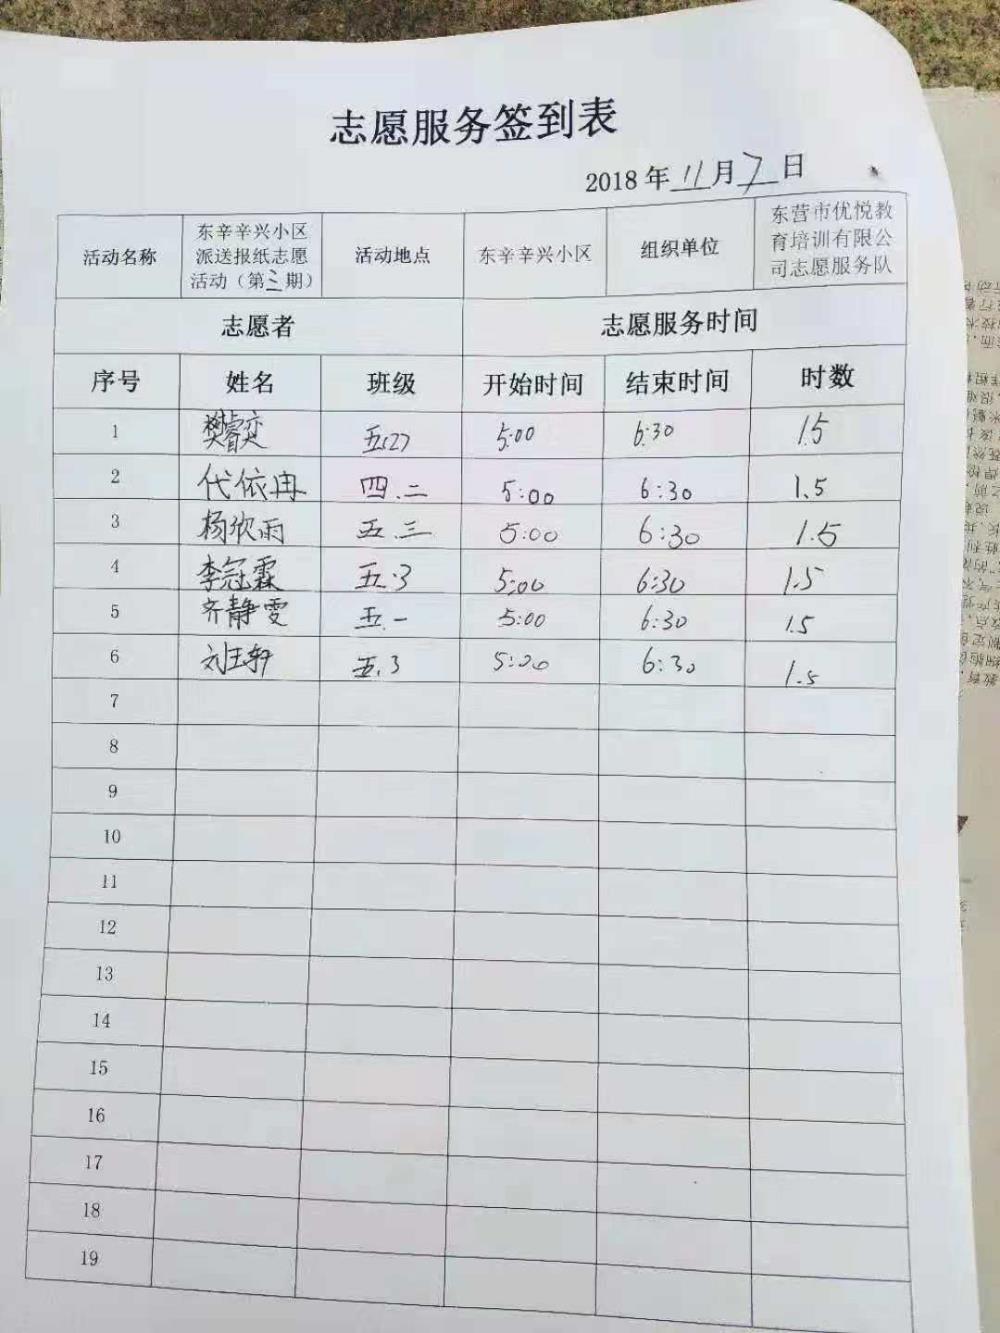 志愿服务签到表
2018年11月7日
活动名称 东辛辛兴小区派送报纸志愿活动(第三期) 活动地点 东辛辛兴小区 组织单位 东营市优悦教育培训有限公司志愿服务队
志愿者 志愿服务时间
序号 姓名 班级 开始时间 结束时间 时数
1 樊睿奕 五(2) 5:00 6:30 1.5
2 代依冉 四.二 5:00 6:30 1.5
3 杨欣雨 五.三 5:00 6:30 1.5
4 李冠霖 五.3 5:00 6:30 1.5
5 齐静雯 五.一 5:00 6:30 1.5
6 刘玉轩 五.3 5:00 6:30 1.5
7
8
9
10
11
12
13
14
15
16
17
18
19